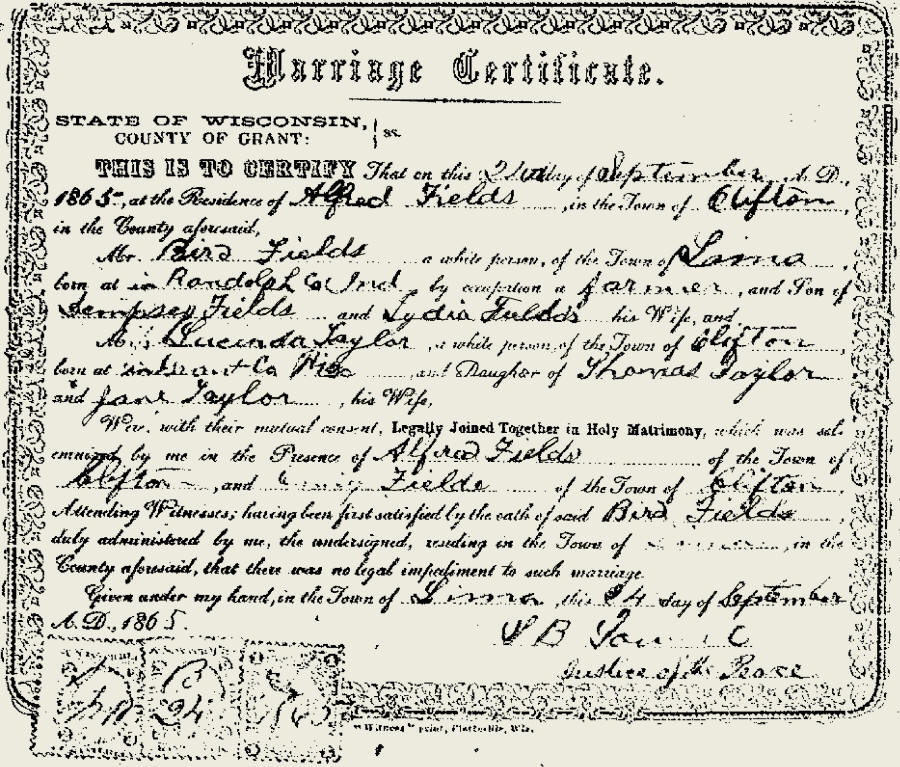 Marriage Certificate.
STATE OF WISCONSIN,
COUNTY OF GRANT: } ss.
THIS IS TO CERTIFY That on this day of September A. D.
1865, at the Residence of Alfred Fields, in the Town of Clifton,
in the County aforesaid,
Mr. Bird Fields a white person, of the Town of Lima,
born at in Randolph Co Ind, by occupation a farmer, and Son of
Dempsey Fields and Lydia Fields his Wife, and
Lucinda Taylor, a white person, of the Town of Clifton
born at in Grant Co Wis and Daughter of Thomas Taylor
and Jane Taylor, his Wife,
Were, with their mutual consent, Legally Joined Together in Holy Matrimony, which was sol-
emnized by me in the Presence of Alfred Fields of the Town of
Clifton, and Fields of the Town of Clifton,
Attending Witnesses; having been first satisfied by the oath of said Bird Fields,
duly administered by me, the undersigned, residing in the Town of, in the
County aforesaid, that there was no legal impediment to such marriage
Given under my hand, in the Town of Lima, this 24 day of September
A. D., 1865.
S B
Justice of the Peace
B
24
"Witness" print, Platteville, Wis.